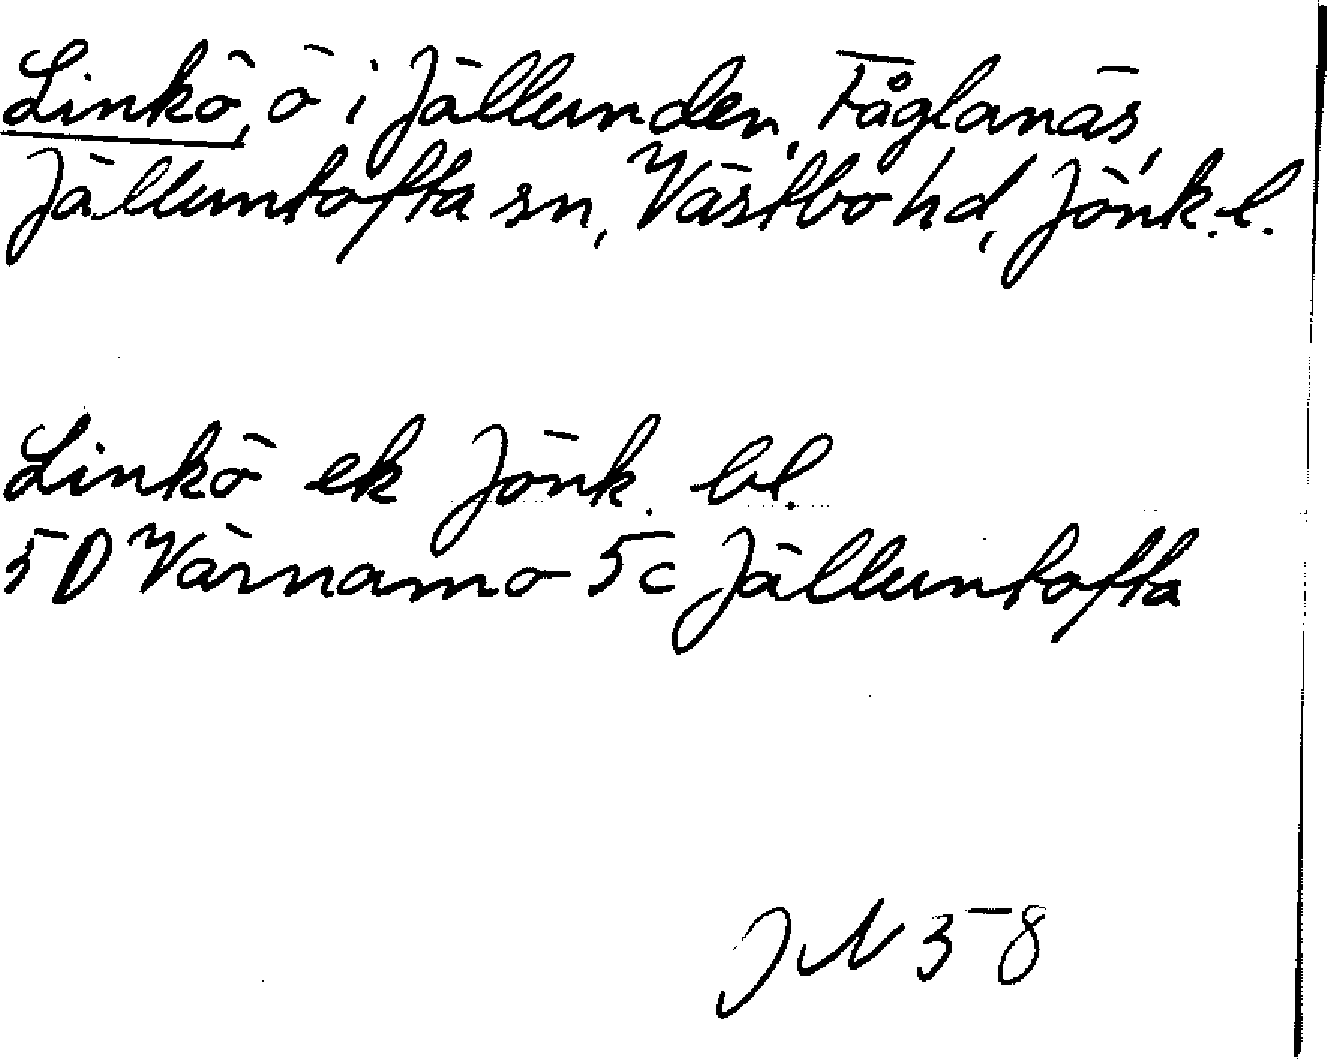 Linkö, ö i Jällunden, Fåglanäs,
Jälluntofta sn, Västbo hd, Jönk. l.
Linkö ek Jönk. bl.
5D Värnamo 5c Jälluntofta
JN 58